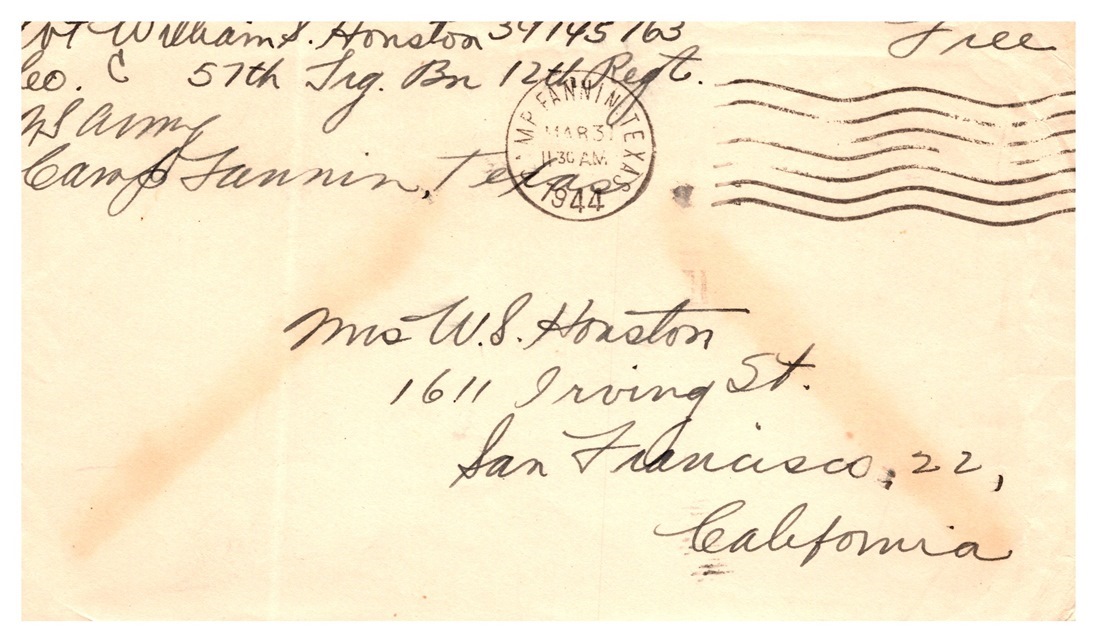 Pvt William S. Houston 39145763
Co. C 57th Trg. Bn 12th Regt.
US Army
Camp Fannin, Texas
Free
CAMP FANNIN, TEXAS
MAR 31
11 30 AM
1944
Mrs W. S. Houston
1611 Irving St.
San Francisco, 22,
California